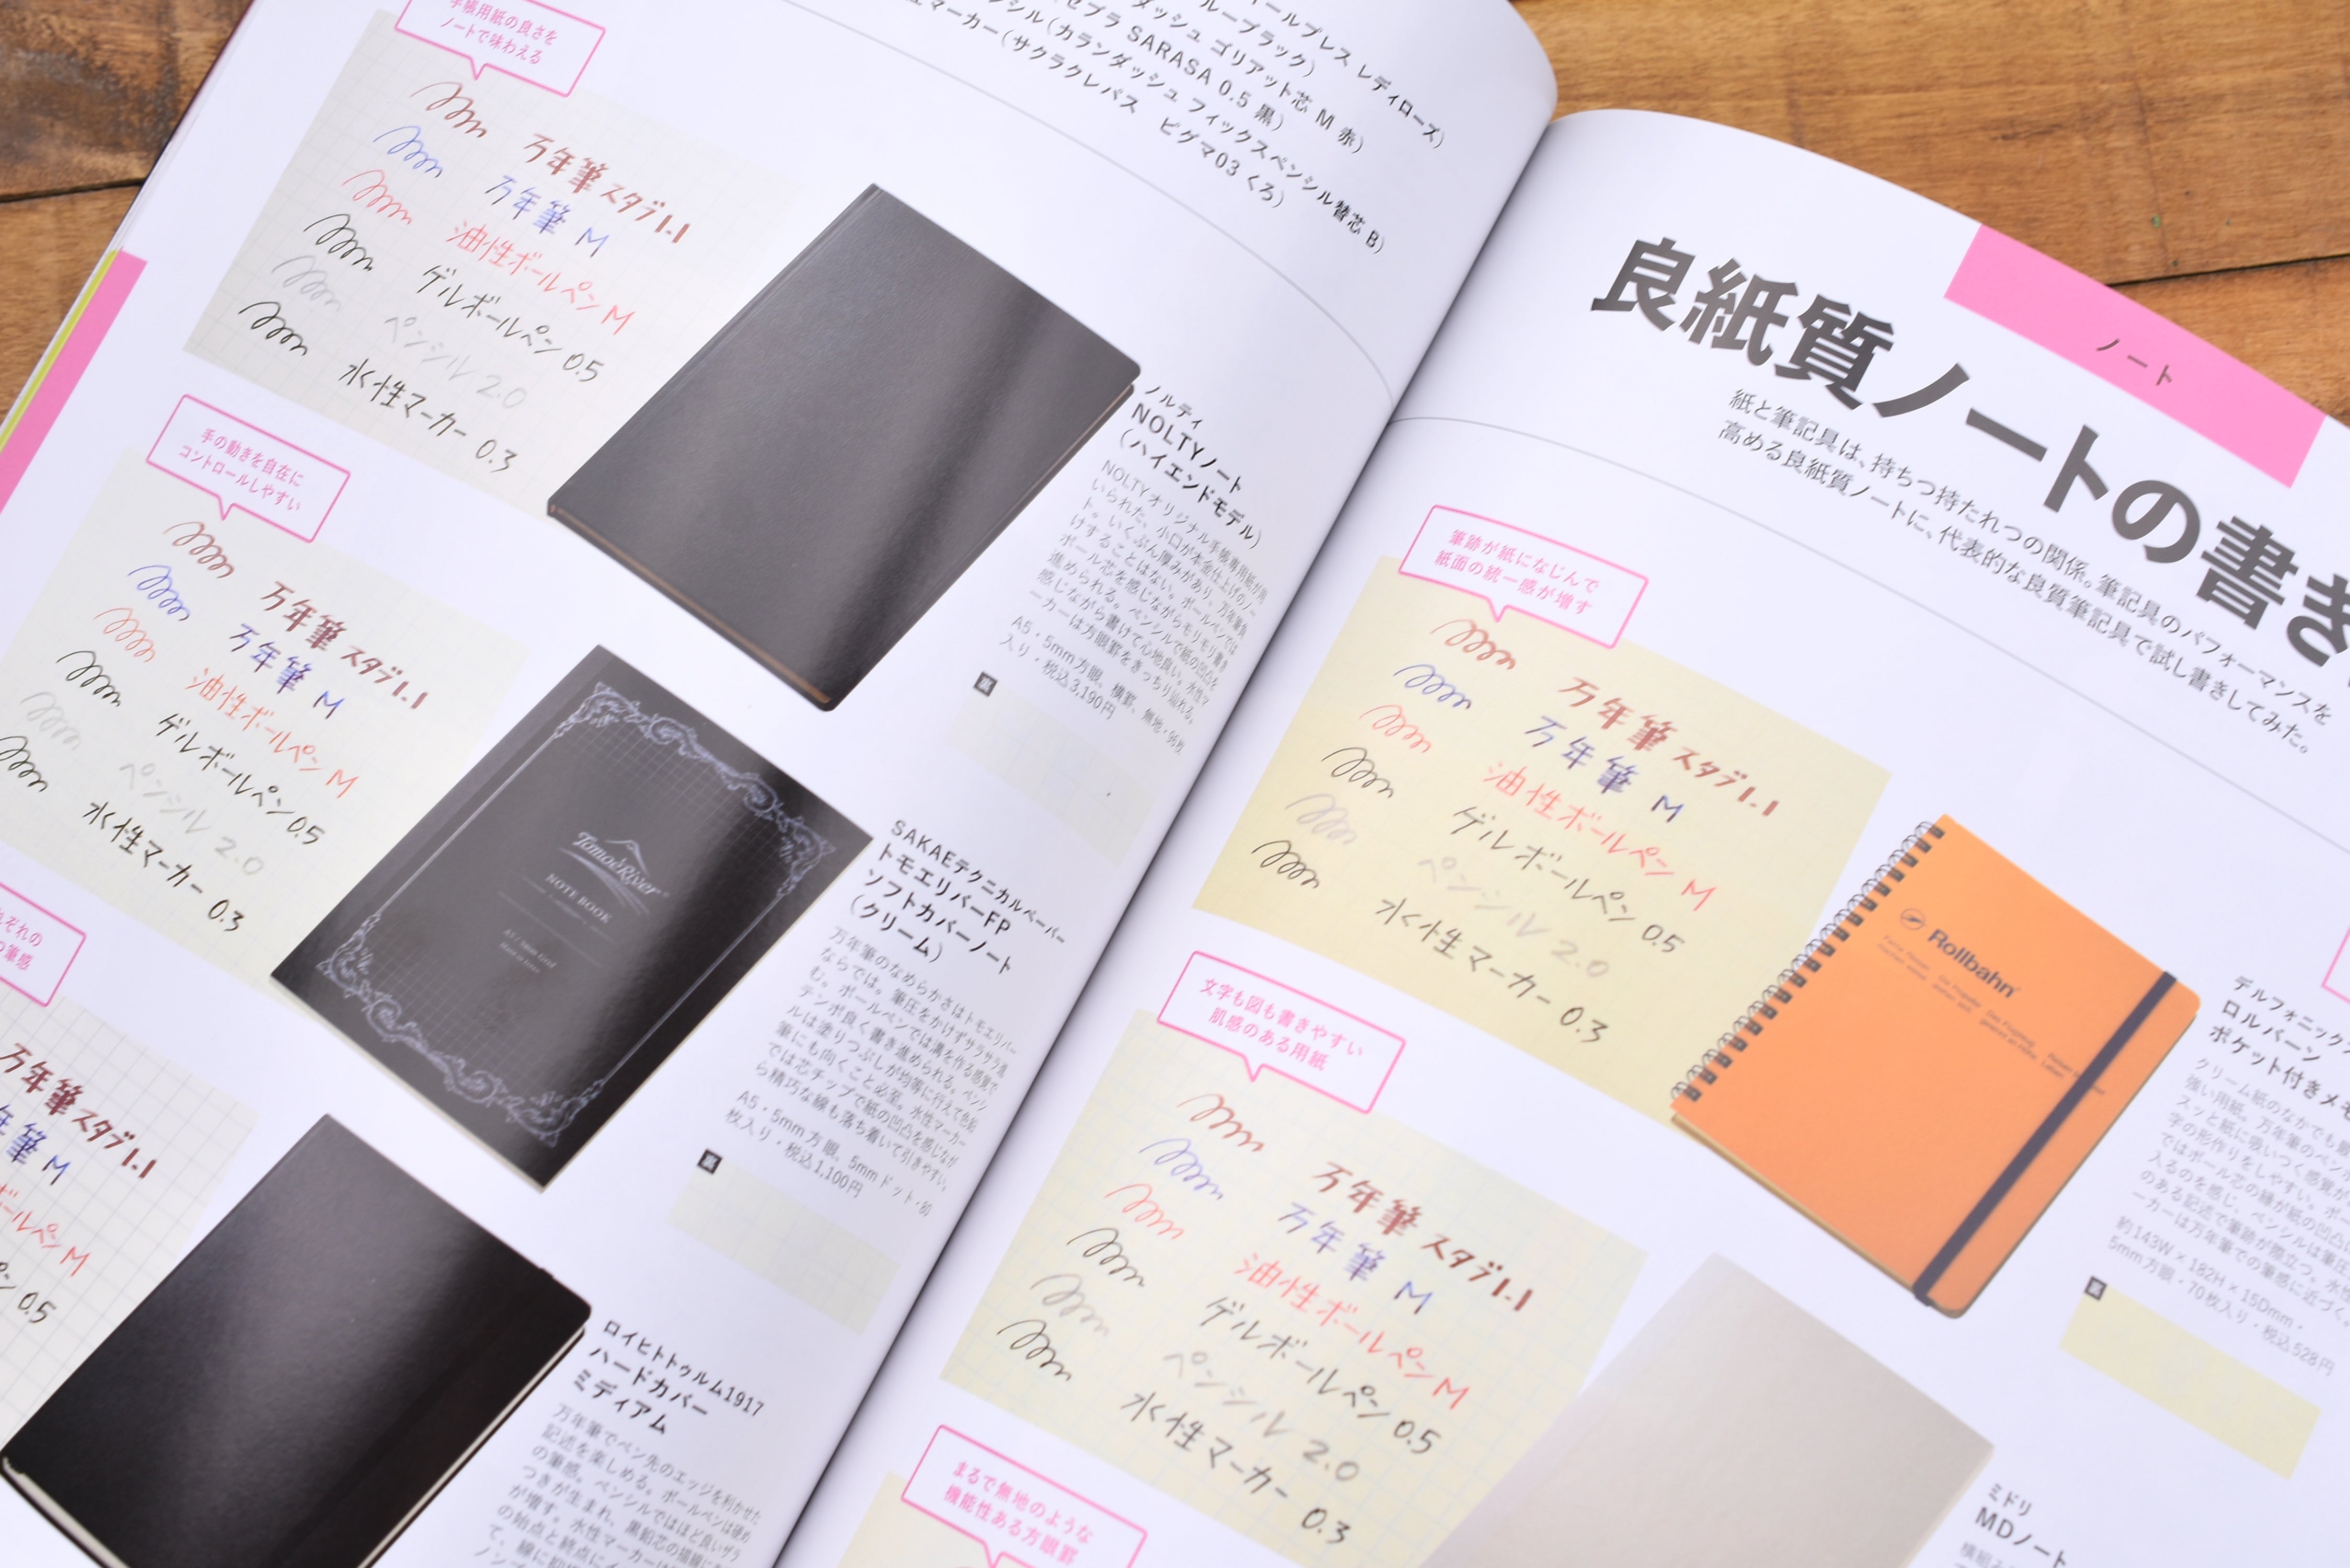 手帳用紙の良さを
ノートで味わえる
万年筆 スタブ1.1
万年筆 M
油性ボールペン M
ゲルボールペン 0.5
ペンシル 2.0
水性マーカー 0.3
ールプレス レディローズ)
ルーブラック)
ダッシュ ゴリアット芯 M 赤)
ゼブラ SARASA 0.5 黒)
ンシル(カランダッシュ フィックスペンシル替芯 B)
マーカー(サクラクレパス ピグマ03 くろ)
ノルティ
NOLTYノート
(ハイエンドモデル)
NOLTYオリジナル手帳専用紙が用
いられた、小口が本金仕上げのノー
ト。いくぶん厚みがあり、万年筆負
けすることはない。ボールペンでは
ボール芯を感じながらモリモリ書き
進められる。ペンシルで紙の凹凸を
感じながら書けて心地良い。水性マ
ーカーは方眼罫をきっちり辿れる。
A5・5mm方眼、横罫、無地・96枚
入り・税込3,190円
裏
手の動きを自在に
コントロールしやすい
万年筆 スタブ1.1
万年筆 M
油性ボールペン M
ゲルボールペン 0.5
ペンシル 2.0
水性マーカー 0.3
TomoeRiver
NOTE BOOK
SAKAEテクニカルペーパー
トモエリバーFP
ソフトカバーノート
(クリーム)
万年筆のなめらかさはトモエリバー
ならでは。筆圧をかけずサラサラ進
む。ボールペンでは溝を作る感覚で
テンポ良く書き進められる。ペンシ
ルは塗りつぶしが均等に行えて色鉛
筆にも向くこと必至。水性マーカー
では芯チップで紙の凹凸を感じなが
ら精巧な線も落ち着いて引きやすい。
A5・5mm方眼、5mmドット・80
枚入り・税込1,100円
裏
ぞれの
筆感
万年筆 スタブ1.1
筆 M
ボールペン M
ペン 0.5
ロイヒトトゥルム1917
ハードカバー
ミディアム
万年筆でペン先のエッジを利かせた
記述を楽しめる。ボールペンは硬め
の筆感。ペンシルではほど良いザラ
つきが生まれ、黒鉛芯の描線に
が増す。水性マーカーは
の始点と終点に
ノート
良紙質ノートの書き
紙と筆記具は、持ちつ持たれつの関係。筆記具のパフォーマンスを
高める良紙質ノートに、代表的な良質筆記具で試し書きしてみた。
筆跡が紙になじんで
紙面の統一感が増す
万年筆 スタブ1.1
万年筆 M
油性ボールペン M
ゲルボールペン 0.5
ペンシル 2.0
水性マーカー 0.3
Rollbahn
デルフォニックス
ロルバーン
ポケット付きメモ
クリーム紙のなかでも
強い用紙。万年筆のペン
スッと紙に吸いつく感覚が
字の形作りをしやすい。ボー
ではボール芯の縁が紙の凹凸
入るのを感じ、ペンシルは筆圧
のある記述で筆跡が際立つ。水性
ーカーは万年筆での筆感に近づく。
約143W × 182H × 15Dmm・
5mm方眼・70枚入り・税込528円
裏
文字も図も書きやすい
肌感のある用紙
万年筆 スタブ1.1
万年筆 M
油性ボールペン M
ゲルボールペン 0.5
ペンシル 2.0
水性マーカー 0.3
ミドリ
MDノート
まるで無地のような
機能性ある方眼罫